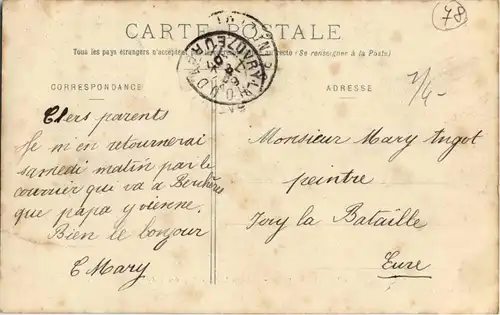 78
CARTE POSTALE
Tous les pays étrangers n'acceptent pas (Se renseigner à la Poste)
CORRESPONDANCE
ADRESSE
Chers parents
Je m'en retournerai
samedi matin par le
courrier qui va à Berchères
que papa y vienne.
Bien le bonjour
E Mary
Monsieur Mary Ingot
peintre
Ivry la Bataille
Eure